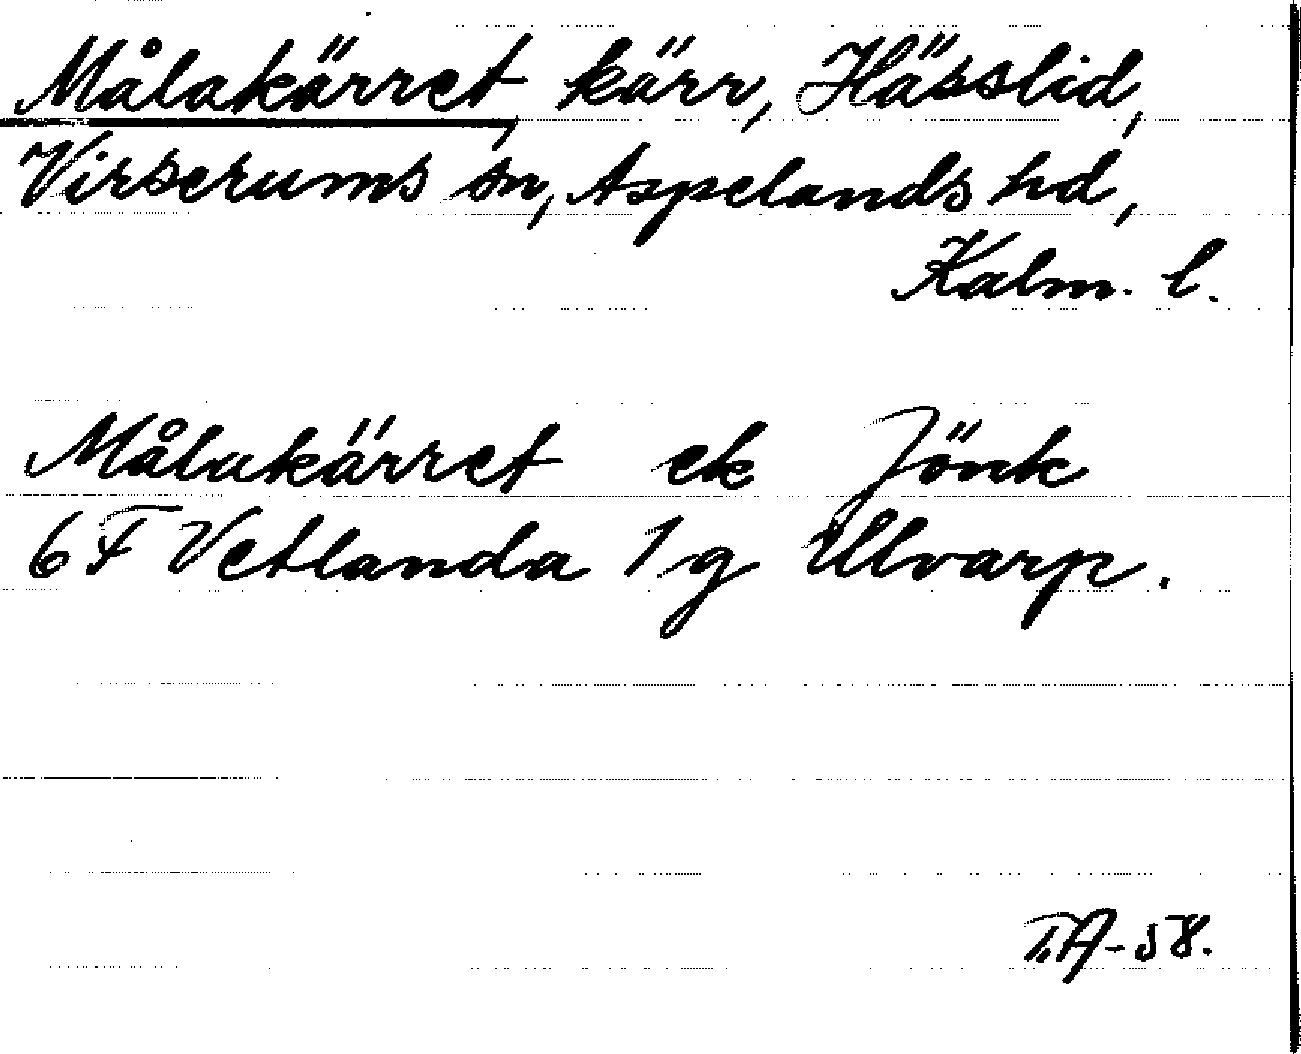 Målakärret, kärr, Hässlid,
Virserums sn, Aspelands hd,
Kalm. l.
Målakärret ek Jönk
6F Vetlanda 1g Ulvarp.
T.A-58.